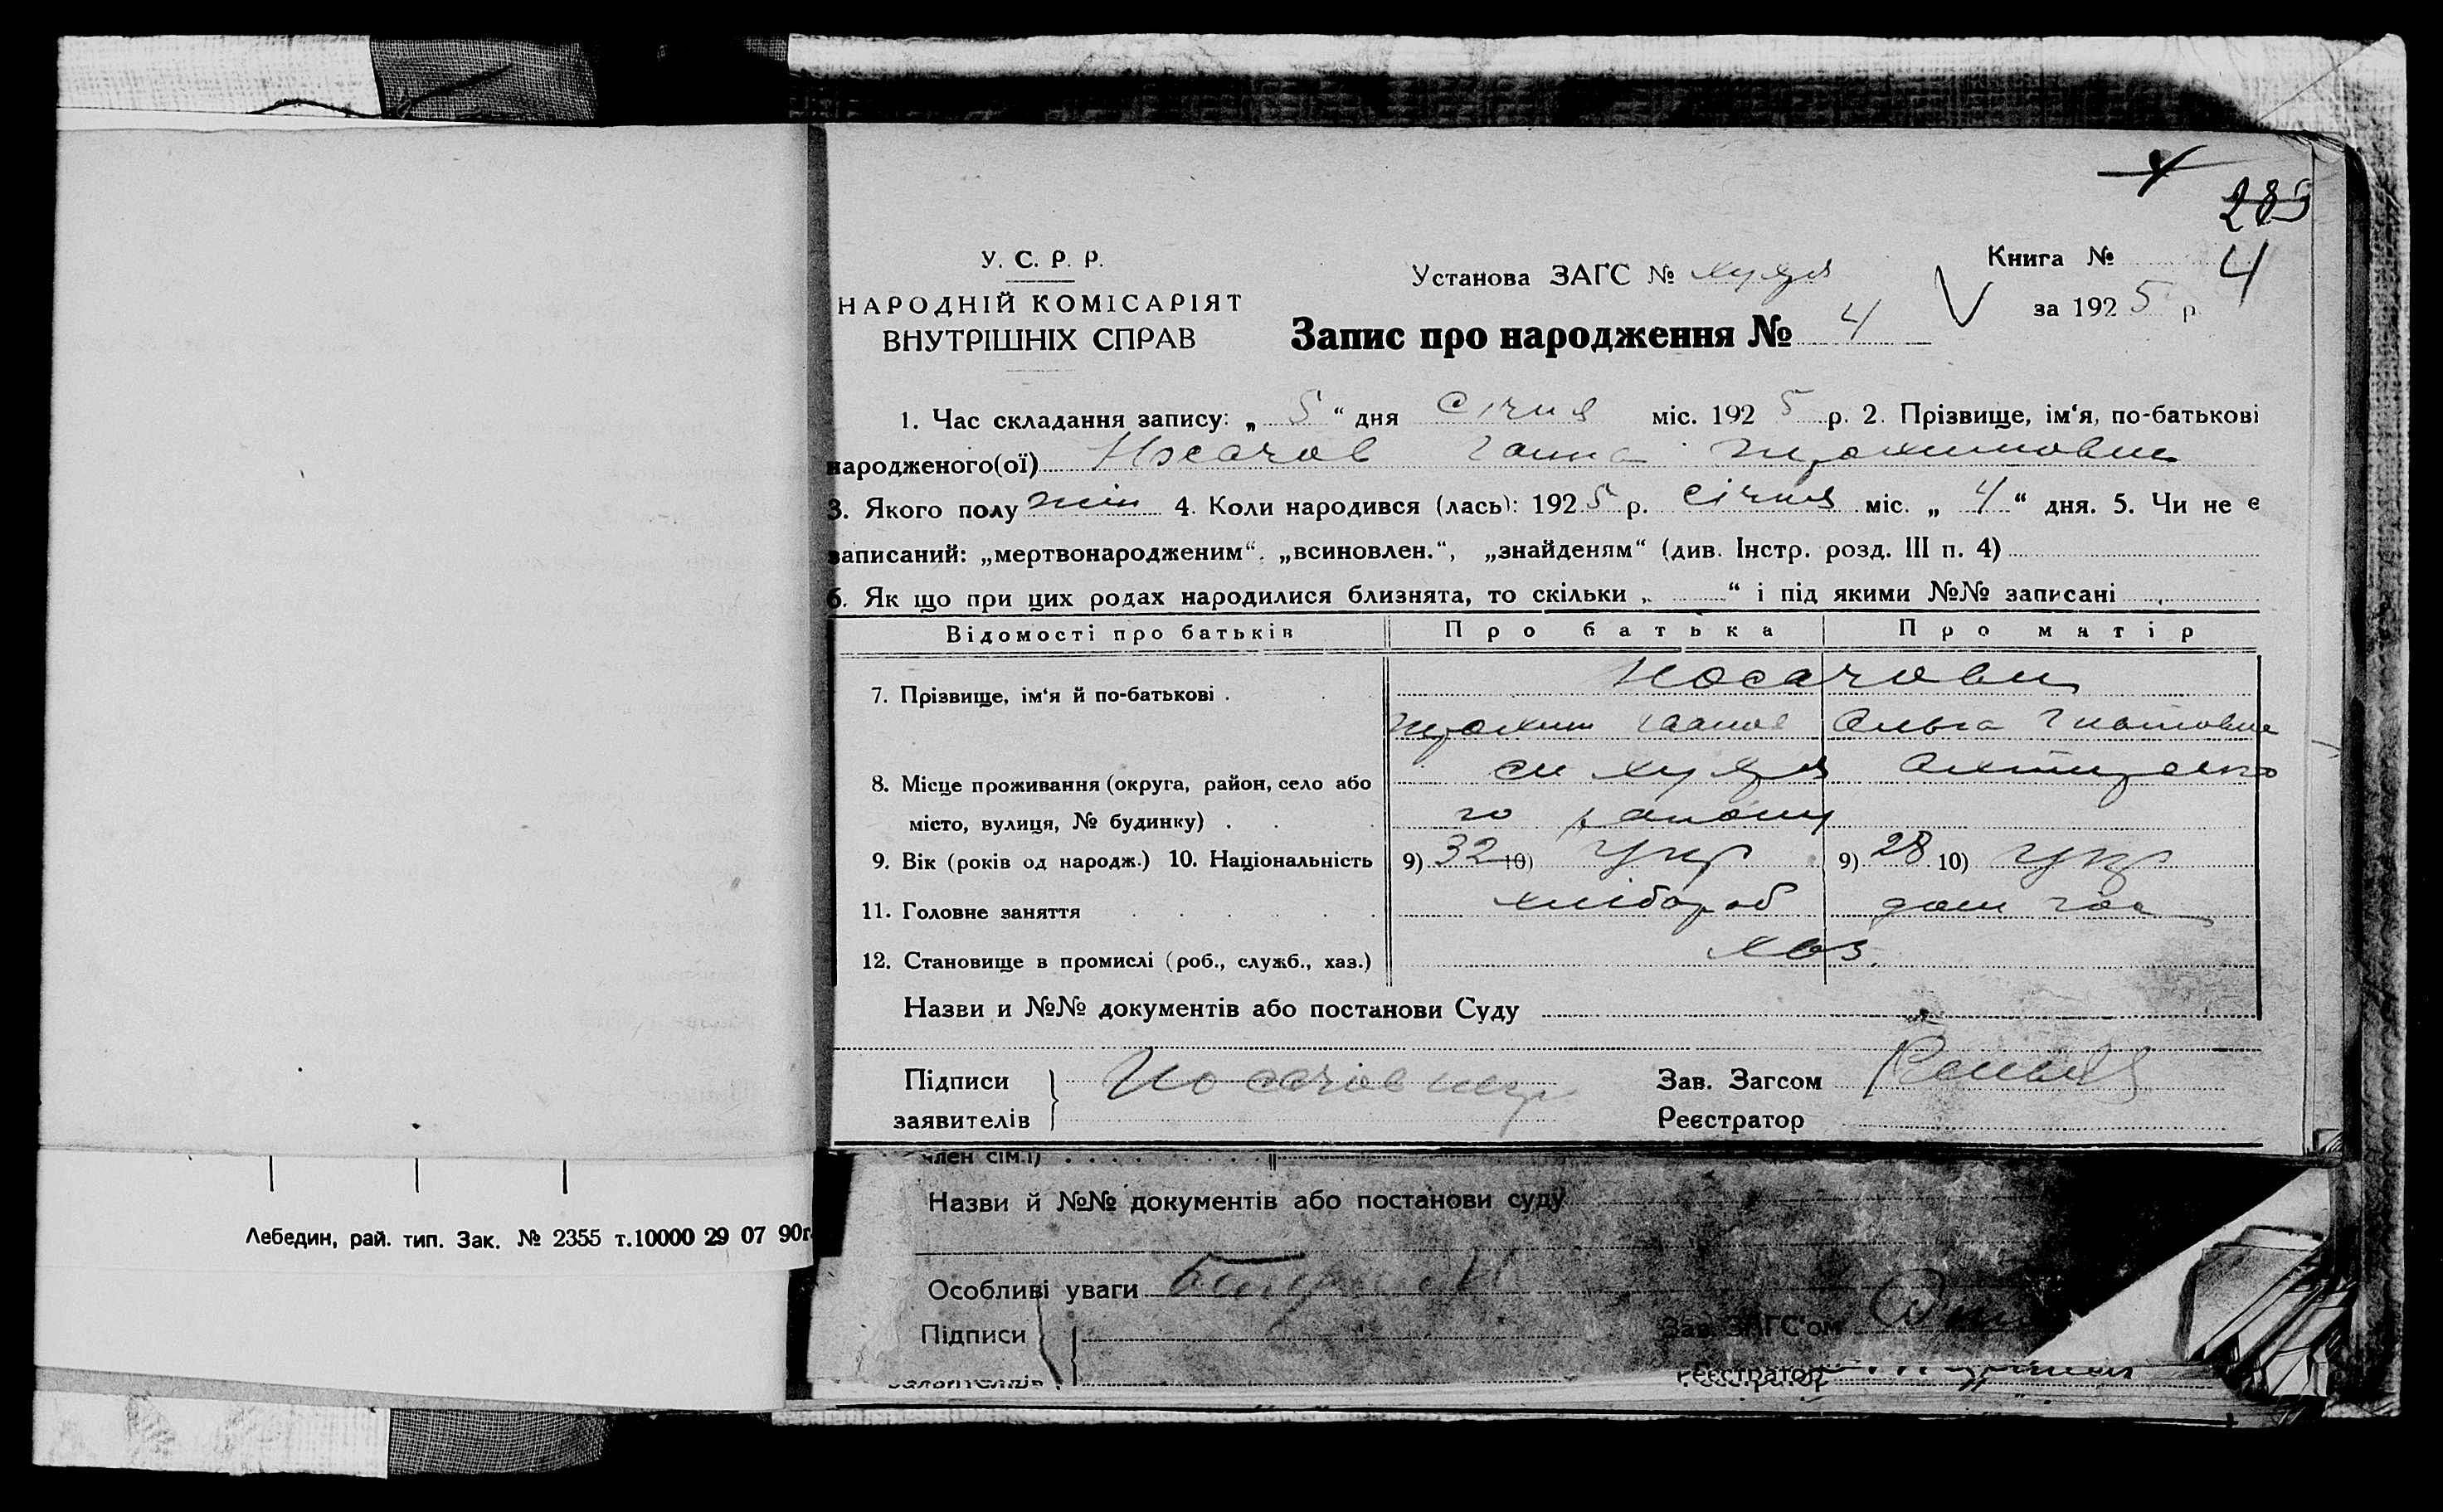 289
У. С. Р. Р.
НАРОДНІЙ КОМІСАРІЯТ
ВНУТРІШНІХ СПРАВ
Установа ЗАГС №
Книга № 4
за 1925 р.
Запис про народження № 4
1. Час складання запису: „ 5 “ дня Січня міс. 1925 р. 2. Прізвище, ім‘я, по-батькові
народженого(ої) Носачов Ганна Трохимовна
3. Якого полу жін 4. Коли народився (лась): 1925 р. січня міс. „ 4 “ дня. 5. Чи не є
записаний: „мертвонародженим“, „всиновлен.“, „знайденям“ (див. Інстр. розд. III п. 4)
6. Як що при цих родах народилися близнята, то скільки „ “ і під якими №№ записані
Відомості про батьків Про батька Про матір
7. Прізвище, ім‘я й по-батькові . Носачови
Трохим Ольга Гнатовна
8. Місце проживання (округа, район, село або
місто, вулиця, № будинку) . го району
9. Вік (років од народж.) 10. Національність 9) 32 10) Укр 9) 28 10) Укр
11. Головне заняття хлібороб дом
12. Становище в промислі (роб., служб., хаз.) хоз.
Назви и №№ документів або постанови Суду
Підписи
заявителів
Носачов
Зав. Загсом
Реєстратор
член сім.ї)
Назви й №№ документів або постанови суду
Особливі уваги
Підписи
Зав. ЗАГС'ом
Реєстратор
Лебедин, рай. тип. Зак. № 2355 т.10000 29 07 90г.